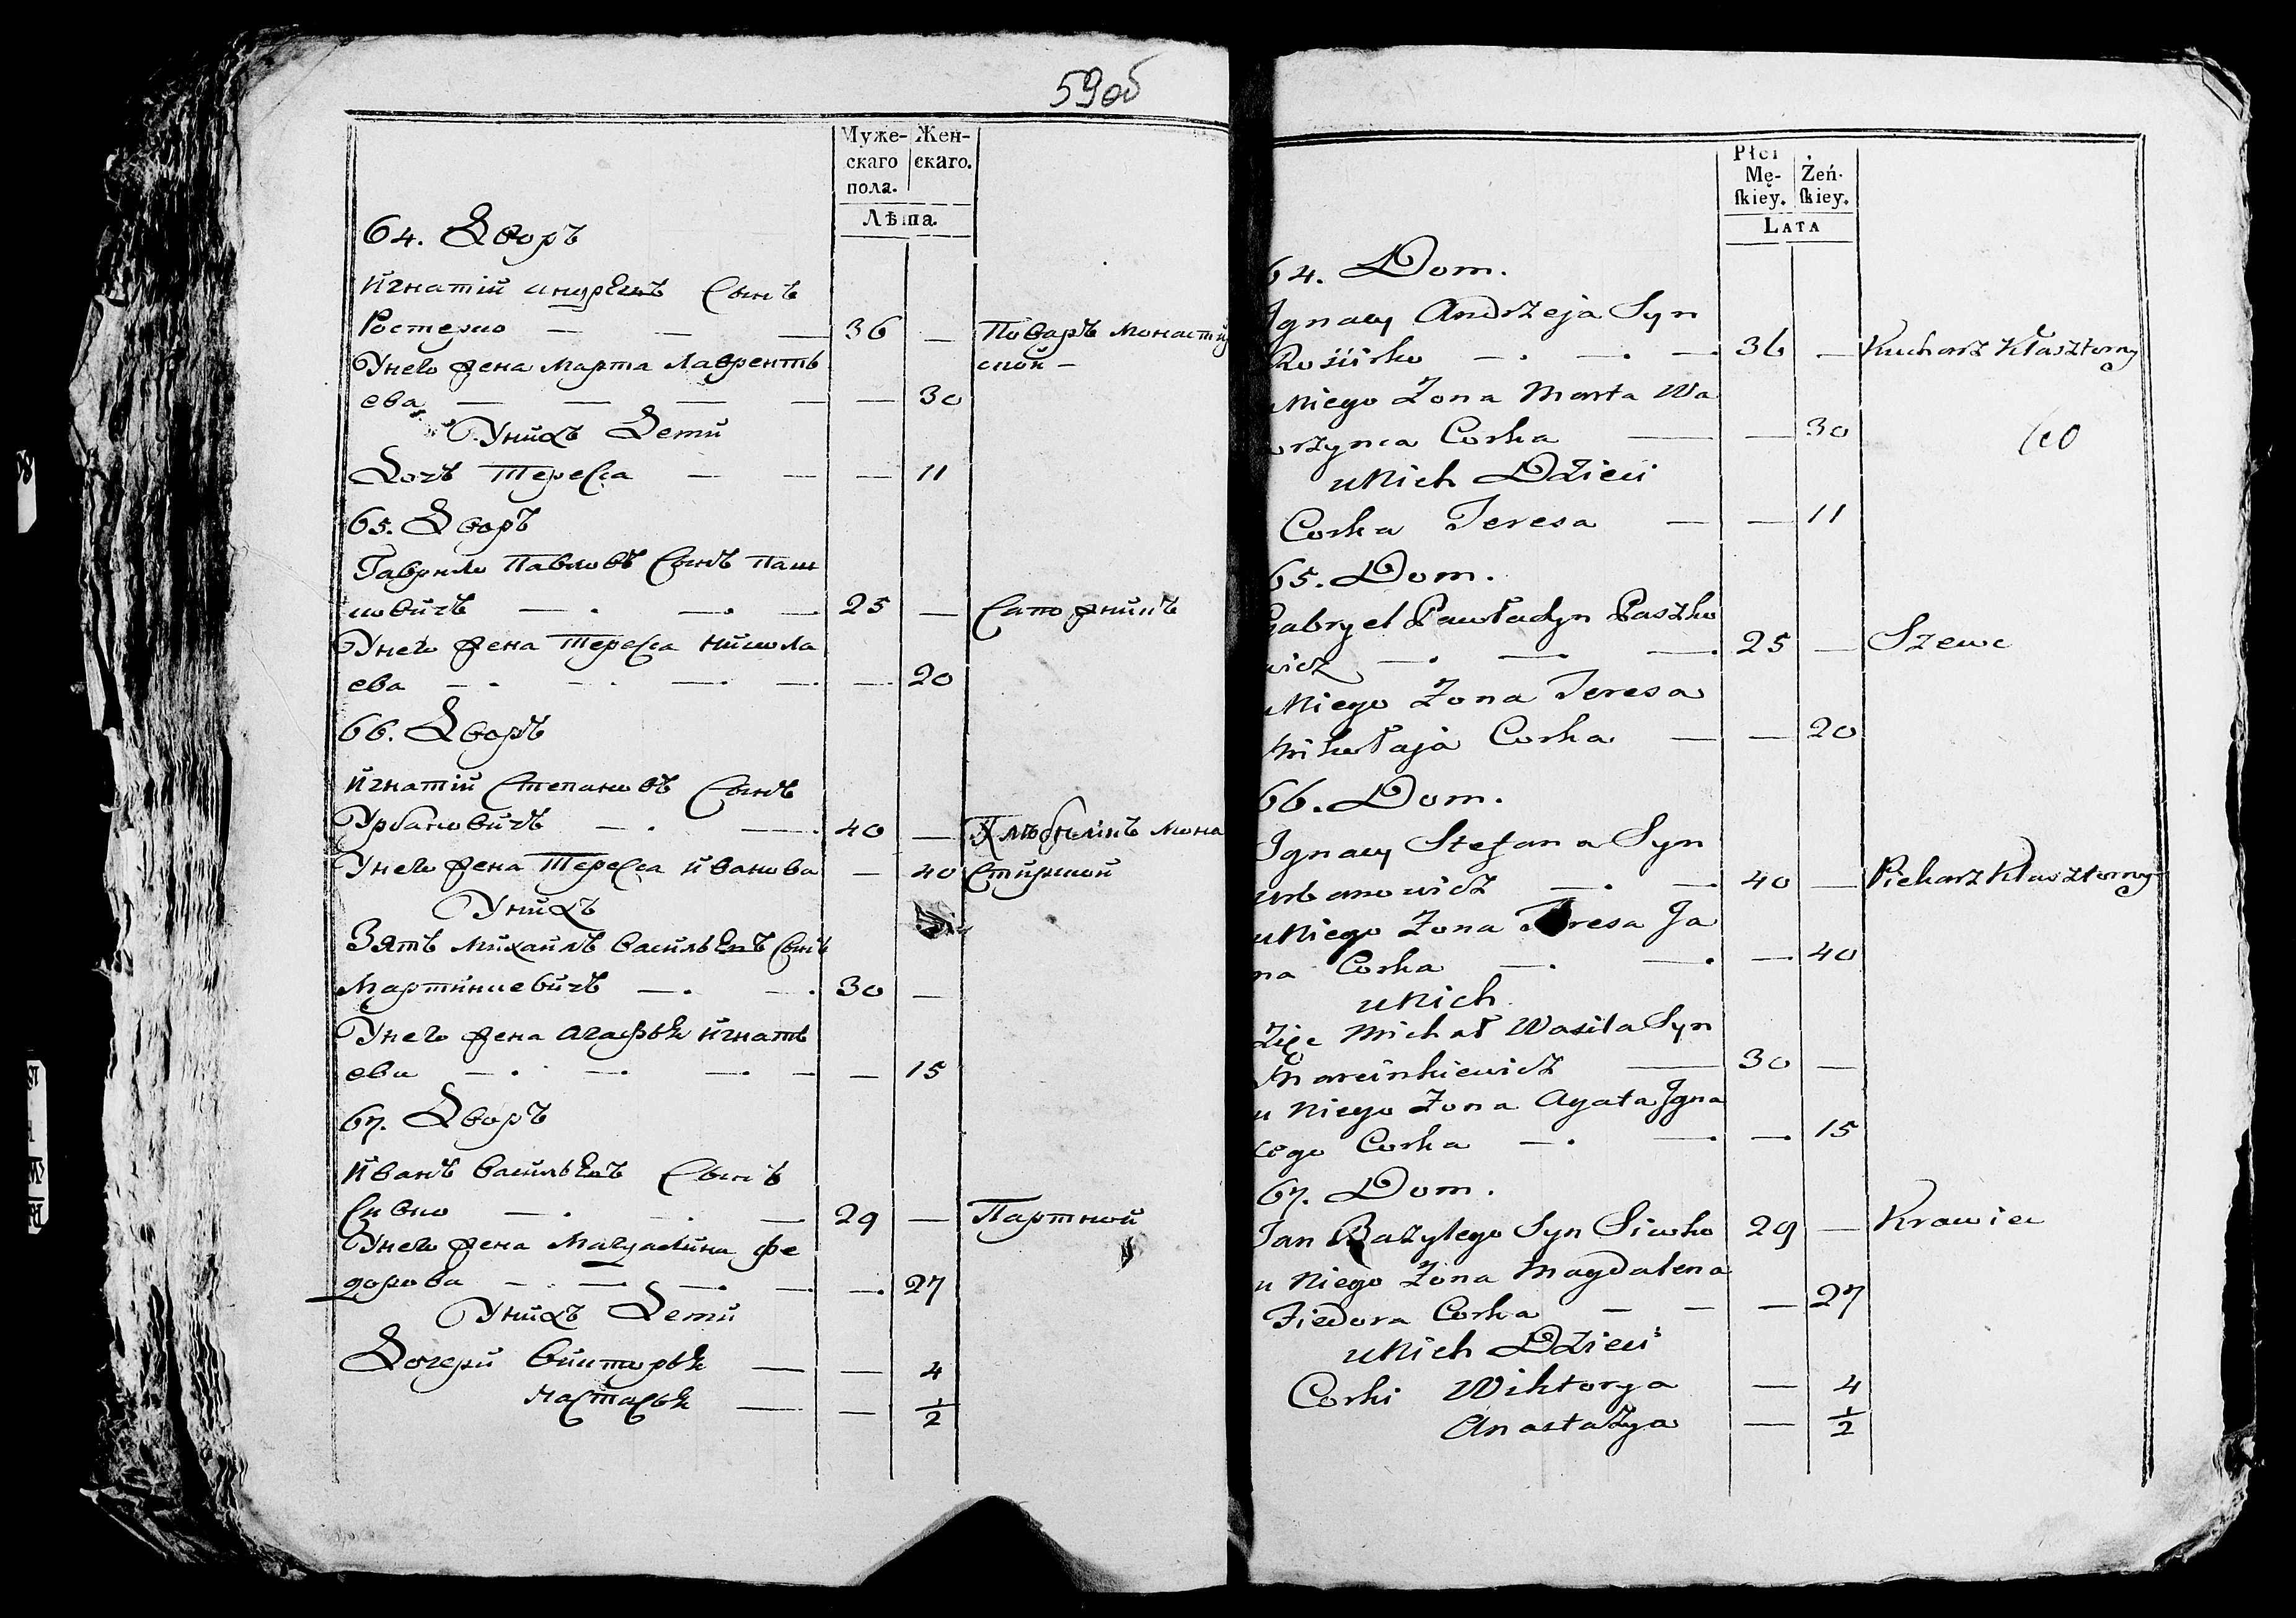 59об
Муже-
скаго
пола.
Жен-
скаго.
Лѣта.
64. Дворъ
Игнатій Андреевъ Сынъ
Ростерко — — — 36 — Поваръ Монасты
Унего жена Марта Лаврентъ
ской —
ева — — — — — 30
Унихъ Дети
Дочь Тересса — — — 11
65. Дворъ
Гаврило Павловъ Сынъ Паш
ковичъ — — — 25 — Сапожникъ
Унего жена Тересса Никола
ева — — — — — 20
66. Дворъ
Игнатій Степановъ Сынъ
Урбановичъ — — 40 — Хлѣбникъ Мона
Унего жена Тересса Иванова — 40 Стырской
Унихъ
Зять Михайлъ Васильевъ Сынъ
Мартинкевичъ — — 30 —
Унего жена Агафья Игнатъ
ева — — — — — 15
67. Дворъ
Иванъ Васильевъ Сынъ
Сивко — — — 29 — Партной
Унего жена Магдалина Фе
дорова — — — — — 27
Унихъ Дети
Дочери Викторья — — 4
Настасья — — 1/2
Płci
Mę-
ſkiey.
Żeń-
ſkiey.
LATA
64. Dom.
Ignacy Andrzeja Syn
— — — 36 — Kucharz Kłasztorny
uNiego Żona Marta Wa
wrzynca Corka — — 30
uNich Dzieci
Corka Teresa — — 11
65. Dom.
Gabryel Pawła Syn Paszko
wicz — — — 25 — Szewc
uNiego Żona Teresa
Mikołaja Corka — — 20
66. Dom.
Ignacy Stefana Syn
Urbanowicz — — 40 — Piekarz Kłasztorny
uNiego Żona Teresa Ja
na Corka — — — 40
uNich
Zięc Michał Wasila Syn
Marcinkiewicz — 30 —
u Niego Żona Agata Igna
cego Corka — — — 15
67. Dom.
Jan Bazylego Syn Siwko 29 — Krawiec
u Niego Żona Magdalena
Fiedora Corka — — — 27
uNich Dzieci
Corki Wiktorya — 4
Anastazya — 1/2